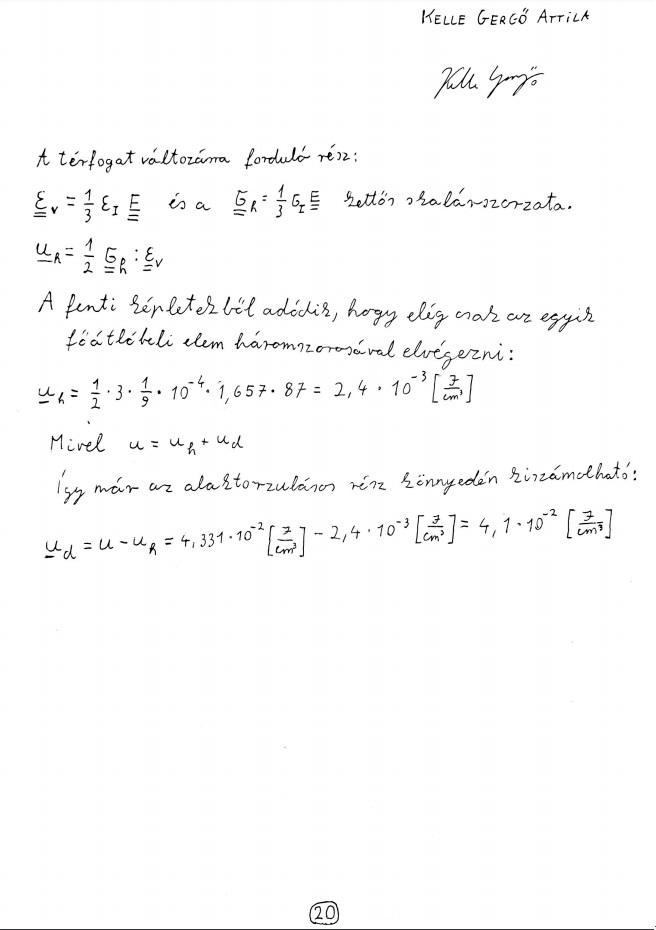 KELLE GERGŐ ATTILA
Kelle Gergő
A térfogat változásra forduló rész:
ε_v = 1/3 ε_I E és a σ_h = 1/3 σ_I E kettős skalárszorzata.
u_h = 1/2 σ_h : ε_v
A fenti képletekből adódik, hogy elég csak az egyik
főátlóbeli elem háromszorosával elvégezni:
u_h = 1/2 · 3 · 1/9 · 10^-4 · 1,657 · 87 = 2,4 · 10^-3 [J/cm³]
Mivel u = u_h + u_d
Így már az alaktorzulásos rész könnyedén kiszámolható:
u_d = u - u_h = 4,331 · 10^-2 [J/cm³] - 2,4 · 10^-3 [J/cm³] = 4,1 · 10^-2 [J/cm³]
20